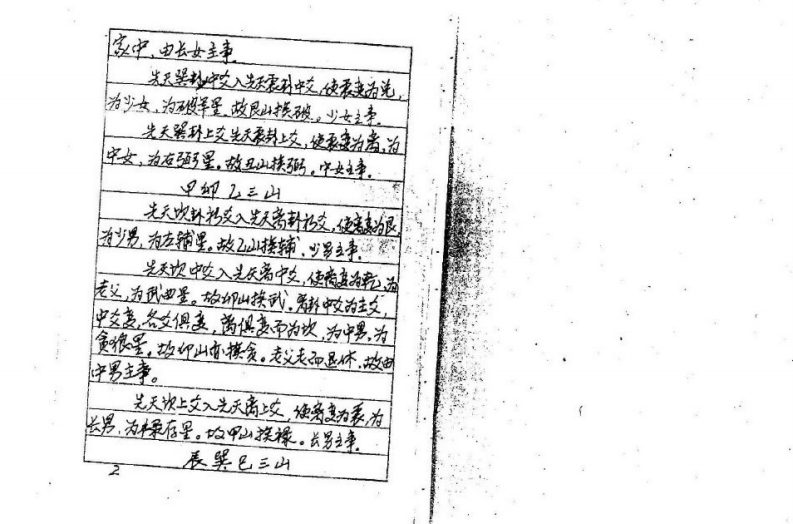 家中,由长女主事。
先天巽卦中爻入先天震卦中爻,使震变为兑,
为少女,为破军星。故艮山挨破,少女主事。
先天巽卦上爻先天震卦上爻,使震变为离,为
中女,为右弼星。故丑山挨弼。中女主事。
甲卯乙三山
先天坎卦初爻入先天离卦初爻,使离变为艮,
为少男,为左辅星。故乙山挨辅,少男主事。
先天坎中爻入先天离中爻,使离变为乾,为
老父,为武曲星。故卯山挨武。离卦中爻为主爻,
中爻变,各爻俱变,离俱变而为坎,为中男,为
贪狼星。故卯山亦挨贪。老父老而退休,故由
中男主事。
先天坎上爻入先天离上爻,使离变为震,为
长男,为禄存星。故甲山挨禄。长男主事。
辰巽巳三山
2